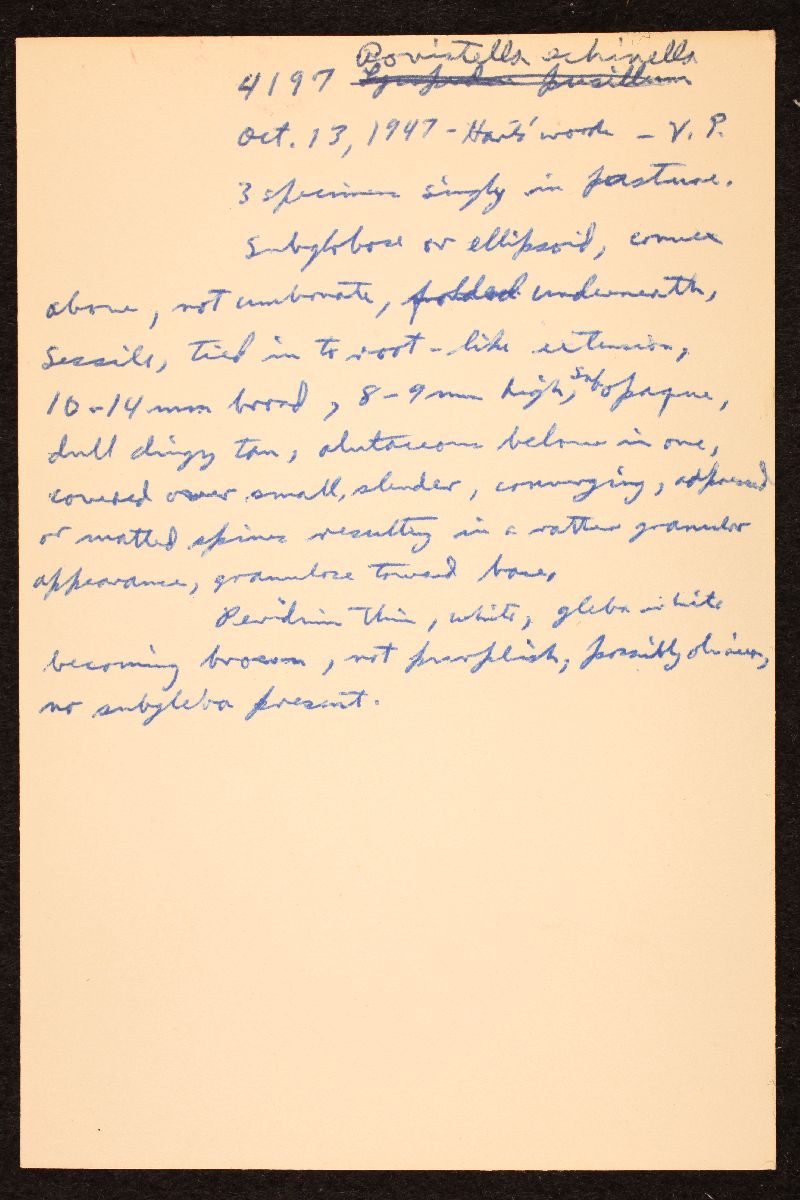 Bovistella echinella
4197 Lycoperdon pusillum
Oct. 13, 1947 - Hart's woods - V. P.
3 specimens singly in pasture.
Subglobose or ellipsoid, convex
above, not umbonate, folded underneath,
sessile, tied in to root-like extension,
10-14 mm broad, 8-9 mm high, subopaque,
dull dingy tan, alutaceous below in one,
covered over small, slender, converging, appressed
or matted spines resulting in a rather granular
appearance, granulose toward base.
Peridium thin, white, gleba white
becoming brown, not purplish, possibly olivaceous,
no subgleba present.